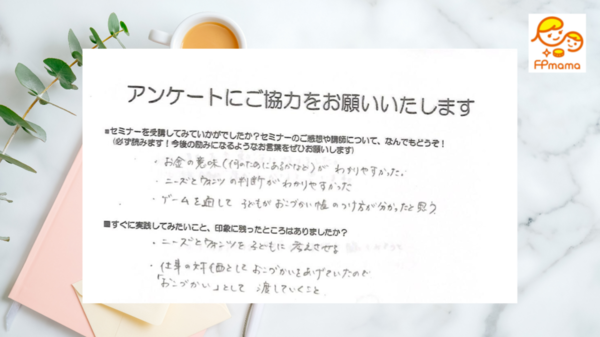 FPmama
アンケートにご協力をお願いいたします
■セミナーを受講してみていかがでしたか?セミナーのご感想や講師について、なんでもどうぞ!
(必ず読みます!今後の励みになるようなお言葉をぜひお願いします)
・お金の意味(何のためにあるかなど)が わかりやすかった。
・ニーズとウォンツの判断がわかりやすかった
・ゲームを通して子どもがおこづかい帳のつけ方が分かったと思う
■すぐに実践してみたいこと、印象に残ったところはありましたか?
・ニーズとウォンツを子どもに考えさせる
・仕事の対価としておこづかいをあげていたので
「おこづかい」として渡していくこと